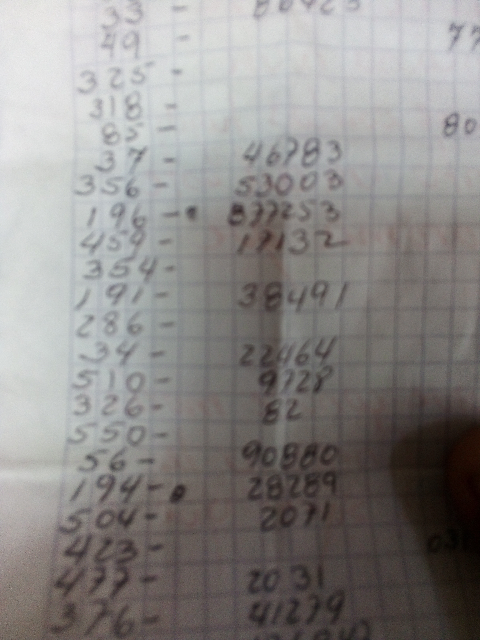 33 - 80923
49 - 77
325 -
318 -
85 - 80
37 - 46783
356 - 53003
196 - 837253
459 - 17132
354 -
191 - 38491
286 -
34 - 22464
510 - 9728
326 - 82
550 -
56 - 90880
194 - 28289
504 - 2071
423 - 031
477 - 2031
376 - 41279